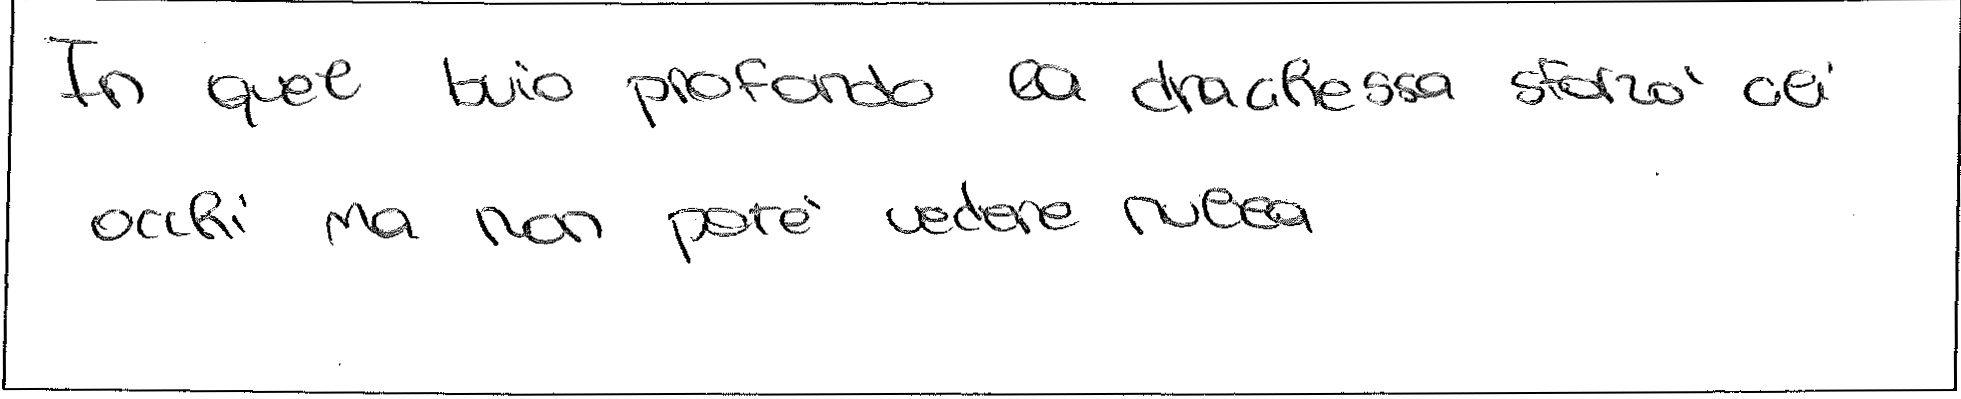 In quel buio profondo la drachessa sforzò cli
occhi ma non potè vedere nulla